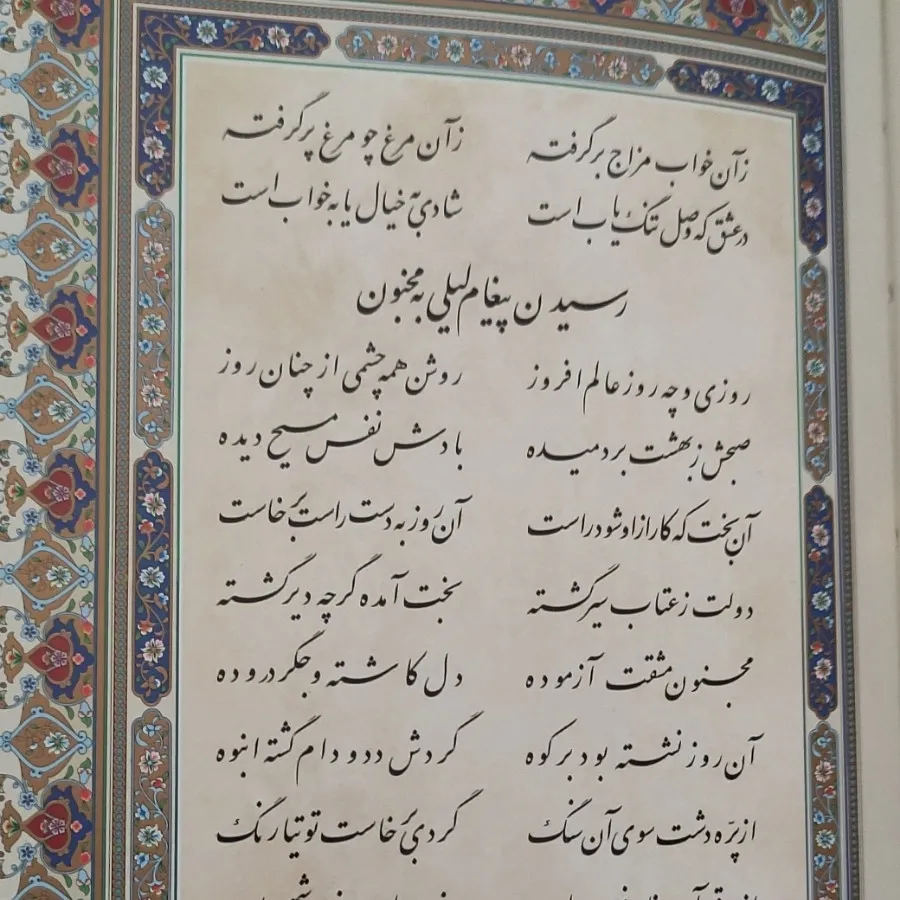 زآن خواب مزاج برگرفته زآن مرغ چو مرغ پرگرفته
در عشق که وصل تنگ یاب است شادی به خیال یا به خواب است
رسیدن پیغام لیلی به مجنون
روزی و چه روز عالم افروز روشن همه چشمی از چنان روز
صبحش ز بهشت بردمیده بادش نفس مسیح دیده
آن بخت که کار ازاو شود راست آن روز به دست راست برخاست
دولت ز عتاب سیر گشته بخت آمده گرچه دیر گشته
مجنون مشقت آزموده دل کاشته و جگر دروده
آن روز نشسته بود بر کوه گردش دد و دام گشته انبوه
از پره دشت سوی آن سنگ گردی برخاست توتیا رنگ